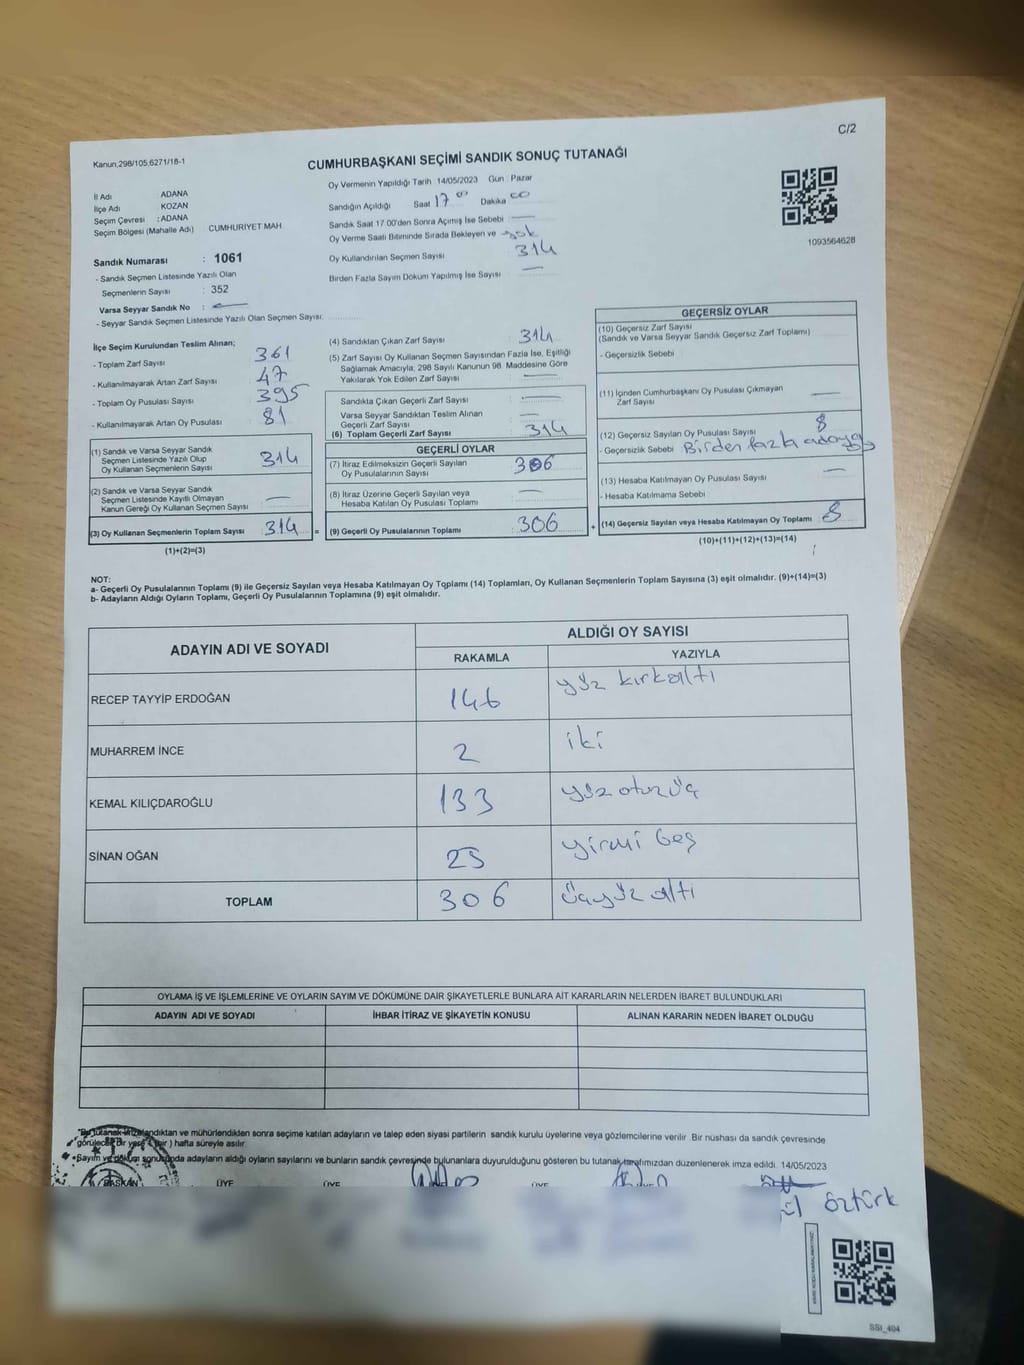 C/2
Kanun,298/105,6271/18-1
CUMHURBAŞKANI SEÇİMİ SANDIK SONUÇ TUTANAĞI
İl Adı ADANA
İlçe Adı KOZAN
Seçim Çevresi : ADANA
Seçim Bölgesi (Mahalle Adı) CUMHURIYET MAH
Sandık Numarası : 1061
- Sandık Seçmen Listesinde Yazılı Olan
Seçmenlerin Sayısı : 352
Varsa Seyyar Sandık No :
- Seyyar Sandık Seçmen Listesinde Yazılı Olan Seçmen Sayısı:
Oy Vermenin Yapıldığı Tarih 14/05/2023 Gün : Pazar
Sandığın Açıldığı Saat 17 00 Dakika 00
Sandık Saat 17:00'den Sonra Açımış İse Sebebi
Oy Verme Saati Bitiminde Sırada Bekleyen ve yok
Oy Kullandırılan Seçmen Sayısı 314
Birden Fazla Sayım Döküm Yapılmış İse Sayısı
1093564628
İlçe Seçim Kurulundan Teslim Alınan;
- Toplam Zarf Sayısı 361
- Kullanılmayarak Artan Zarf Sayısı 47
- Toplam Oy Pusulası Sayısı 395
- Kullanılmayarak Artan Oy Pusulası 81
(1) Sandık ve Varsa Seyyar Sandık
Seçmen Listesinde Yazılı Olup
Oy Kullanan Seçmenlerin Sayısı 314
(2) Sandık ve Varsa Seyyar Sandık
Seçmen Listesinde Kayıtlı Olmayan
Kanun Gereği Oy Kullanan Seçmen Sayısı
(3) Oy Kullanan Seçmenlerin Toplam Sayısı 314 =
(1)+(2)=(3)
(4) Sandıktan Çıkan Zarf Sayısı 314
(5) Zarf Sayısı Oy Kullanan Seçmen Sayısından Fazla İse, Eşitliği
Sağlamak Amacıyla, 298 Sayılı Kanunun 98. Maddesine Göre
Yakılarak Yok Edilen Zarf Sayısı
Sandıkta Çıkan Geçerli Zarf Sayısı
Varsa Seyyar Sandıktan Teslim Alınan
Geçerli Zarf Sayısı
(6) Toplam Geçerli Zarf Sayısı 314
GEÇERLİ OYLAR
(7) İtiraz Edilmeksizin Geçerli Sayılan
Oy Pusulalarının Sayısı 306
(8) İtiraz Üzerine Geçerli Sayılan veya
Hesaba Katılan Oy Pusulası Toplamı
(9) Geçerli Oy Pusulalarının Toplamı : 306 +
GEÇERSİZ OYLAR
(10) Geçersiz Zarf Sayısı
(Sandık ve Varsa Seyyar Sandık Geçersiz Zarf Toplamı)
- Geçersizlik Sebebi
(11) İçinden Cumhurbaşkanı Oy Pusulası Çıkmayan
Zarf Sayısı
(12) Geçersiz Sayılan Oy Pusulası Sayısı 8
- Geçersizlik Sebebi Birden fazla adaya
(13) Hesaba Katılmayan Oy Pusulası Sayısı
- Hesaba Katılmama Sebebi
(14) Geçersiz Sayılan veya Hesaba Katılmayan Oy Toplamı 8
(10)+(11)+(12)+(13)=(14)
NOT:
a- Geçerli Oy Pusulalarının Toplamı (9) ile Geçersiz Sayılan veya Hesaba Katılmayan Oy Toplamı (14) Toplamları, Oy Kullanan Seçmenlerin Toplam Sayısına (3) eşit olmalıdır. (9)+(14)=(3)
b- Adayların Aldığı Oyların Toplamı, Geçerli Oy Pusulalarının Toplamına (9) eşit olmalıdır.
ADAYIN ADI VE SOYADI ALDIĞI OY SAYISI
RAKAMLA YAZIYLA
RECEP TAYYİP ERDOĞAN 146 yüz kırkaltı
MUHARREM İNCE 2 iki
KEMAL KILIÇDAROĞLU 133 yüz otuzüç
SİNAN OĞAN 25 yirmi beş
TOPLAM 306 üçyüz altı
OYLAMA İŞ VE İŞLEMLERİNE VE OYLARIN SAYIM VE DÖKÜMÜNE DAİR ŞİKAYETLERLE BUNLARA AİT KARARLARIN NELERDEN İBARET BULUNDUKLARI
ADAYIN ADI VE SOYADI İHBAR İTİRAZ VE ŞİKAYETİN KONUSU ALINAN KARARIN NEDEN İBARET OLDUĞU
ve mühürlendikten sonra seçime katılan adayların ve talep eden siyasi partilerin sandık kurulu üyelerine veya gözlemcilerine verilir .Bir nüshası da sandık çevresinde
hafta süreyle asılır.
•Sayım ve döküm sonucunda adayların aldığı oyların sayılarını ve bunların sandık çevresinde bulunanlara duyurulduğunu gösteren bu tutanak tarafımızdan düzenlenerek imza edildi. 14/05/2023
BAŞKAN ÜYE ÜYE ÜYE ÜYE
öztürk
SSI_404